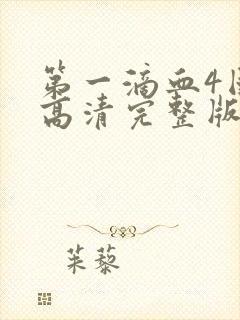 第一滴血4
高清完整版
茱藜